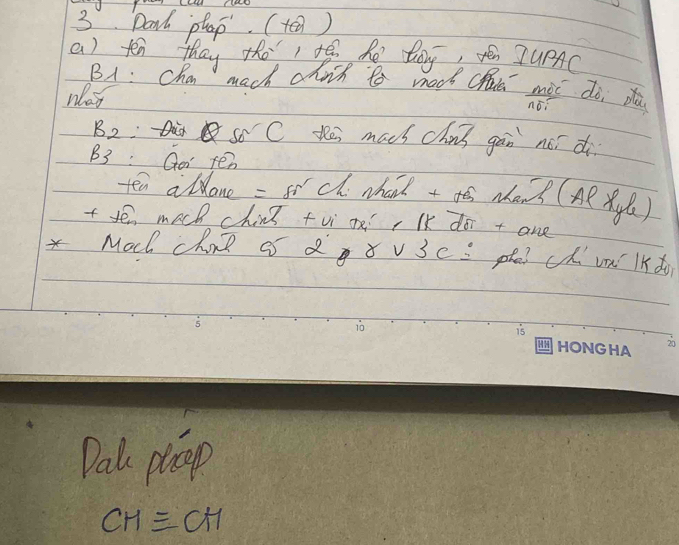 3. Danh pháp. (tên)
a) tên thay thế, tên hệ thống, tên IUPAC
B1: Chọn mạch chính là mạch nhiều nối đôi
nhất
B2: số C trên mạch chính gần nối đôi
B3: Gọi tên
tên alkane = số chỉ nhánh + tên nhánh (Alkyle)
+ tên mạch chính + vị trí, lK đôi + ane
* Mạch chính có 2 v 3 C : phải chỉ vị trí lK đôi
5 10 15 20
HH HONG HA
Dah pháp
CH ≡ CH